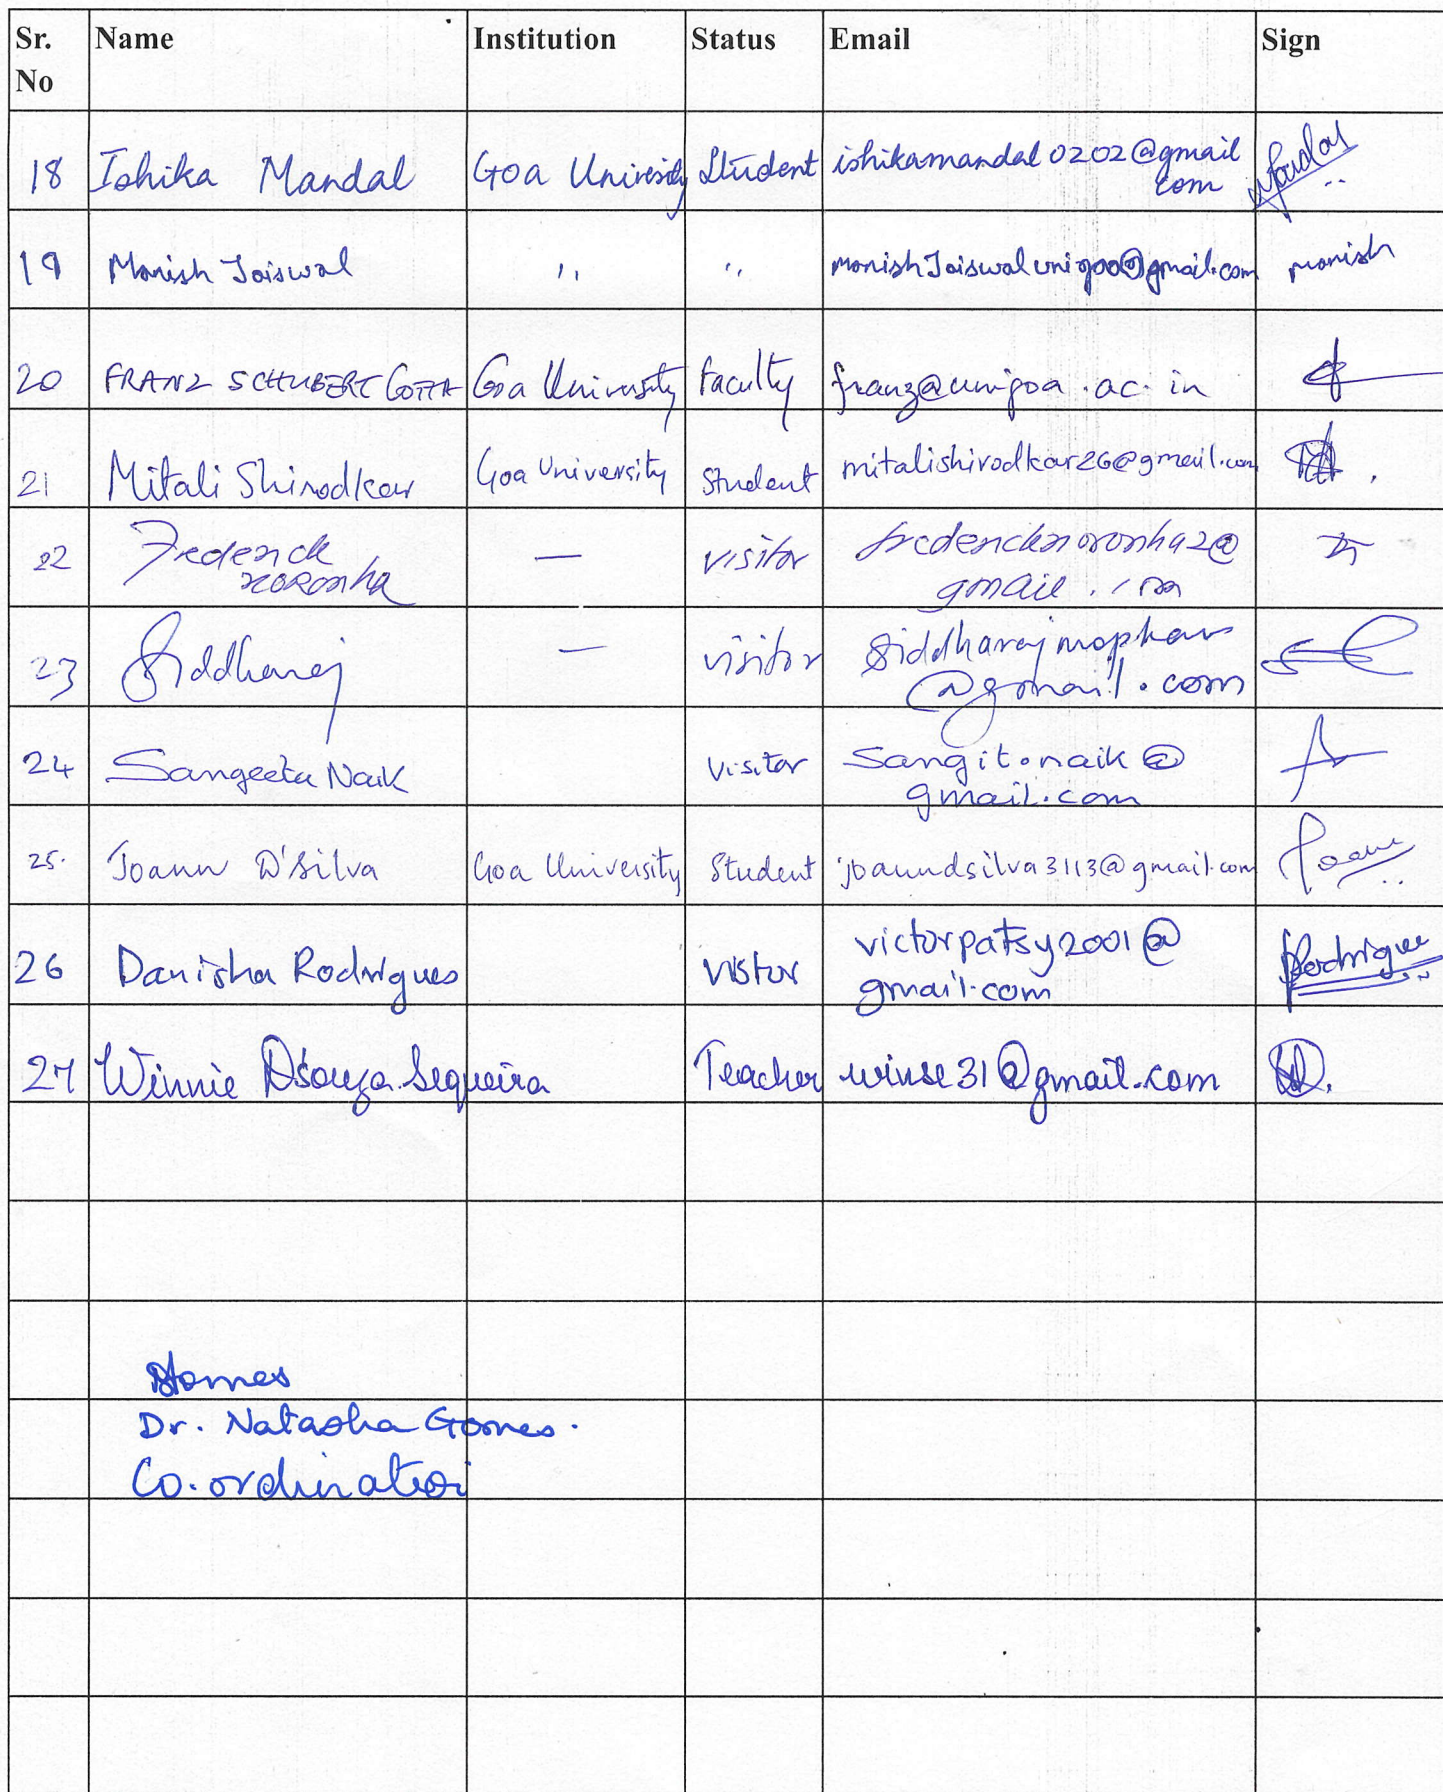 Sr. No Name Institution Status Email Sign
18 Ishika Mandal Goa University Student ishikamandal0202@gmail
com
19 Manish Jaiswal ,, ,, manishJaiswalunigoa@gmail.com manish
20 FRANZ SCHUBERT COTTA Goa University Faculty franz@unigoa.ac.in
21 Mitali Shirodkar Goa University Student mitalishirodkar26@gmail.com
22 Frederick — visitor fredericknoronha2@
Noronha gmail.com
23 Siddharaj — visitor Siddharajmopkar
@gmail.com
24 Sangeeta Naik Visitor Sangit.naik@
gmail.com
25. Joann D'silva Goa University Student joanndsilva3113@gmail.com Joann
26 Danisha Rodrigues Vistor victorpatsy2001@ Rodrigues
gmail.com
27 Winnie Dsouza Sequeira Teacher winse31@gmail.com
Gomes
Dr. Natasha Gomes.
Co-ordinator